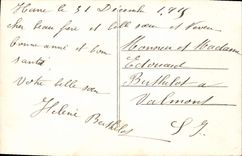 Havre le 31 Décembre 1,918
cher beau frère et belle sœur et Neveu
bonne année et bonne
santé
Votre belle sœur
Hélène Berthelot
Monsieur et Madame
Edouard
Berthelot a
Valmont
S I